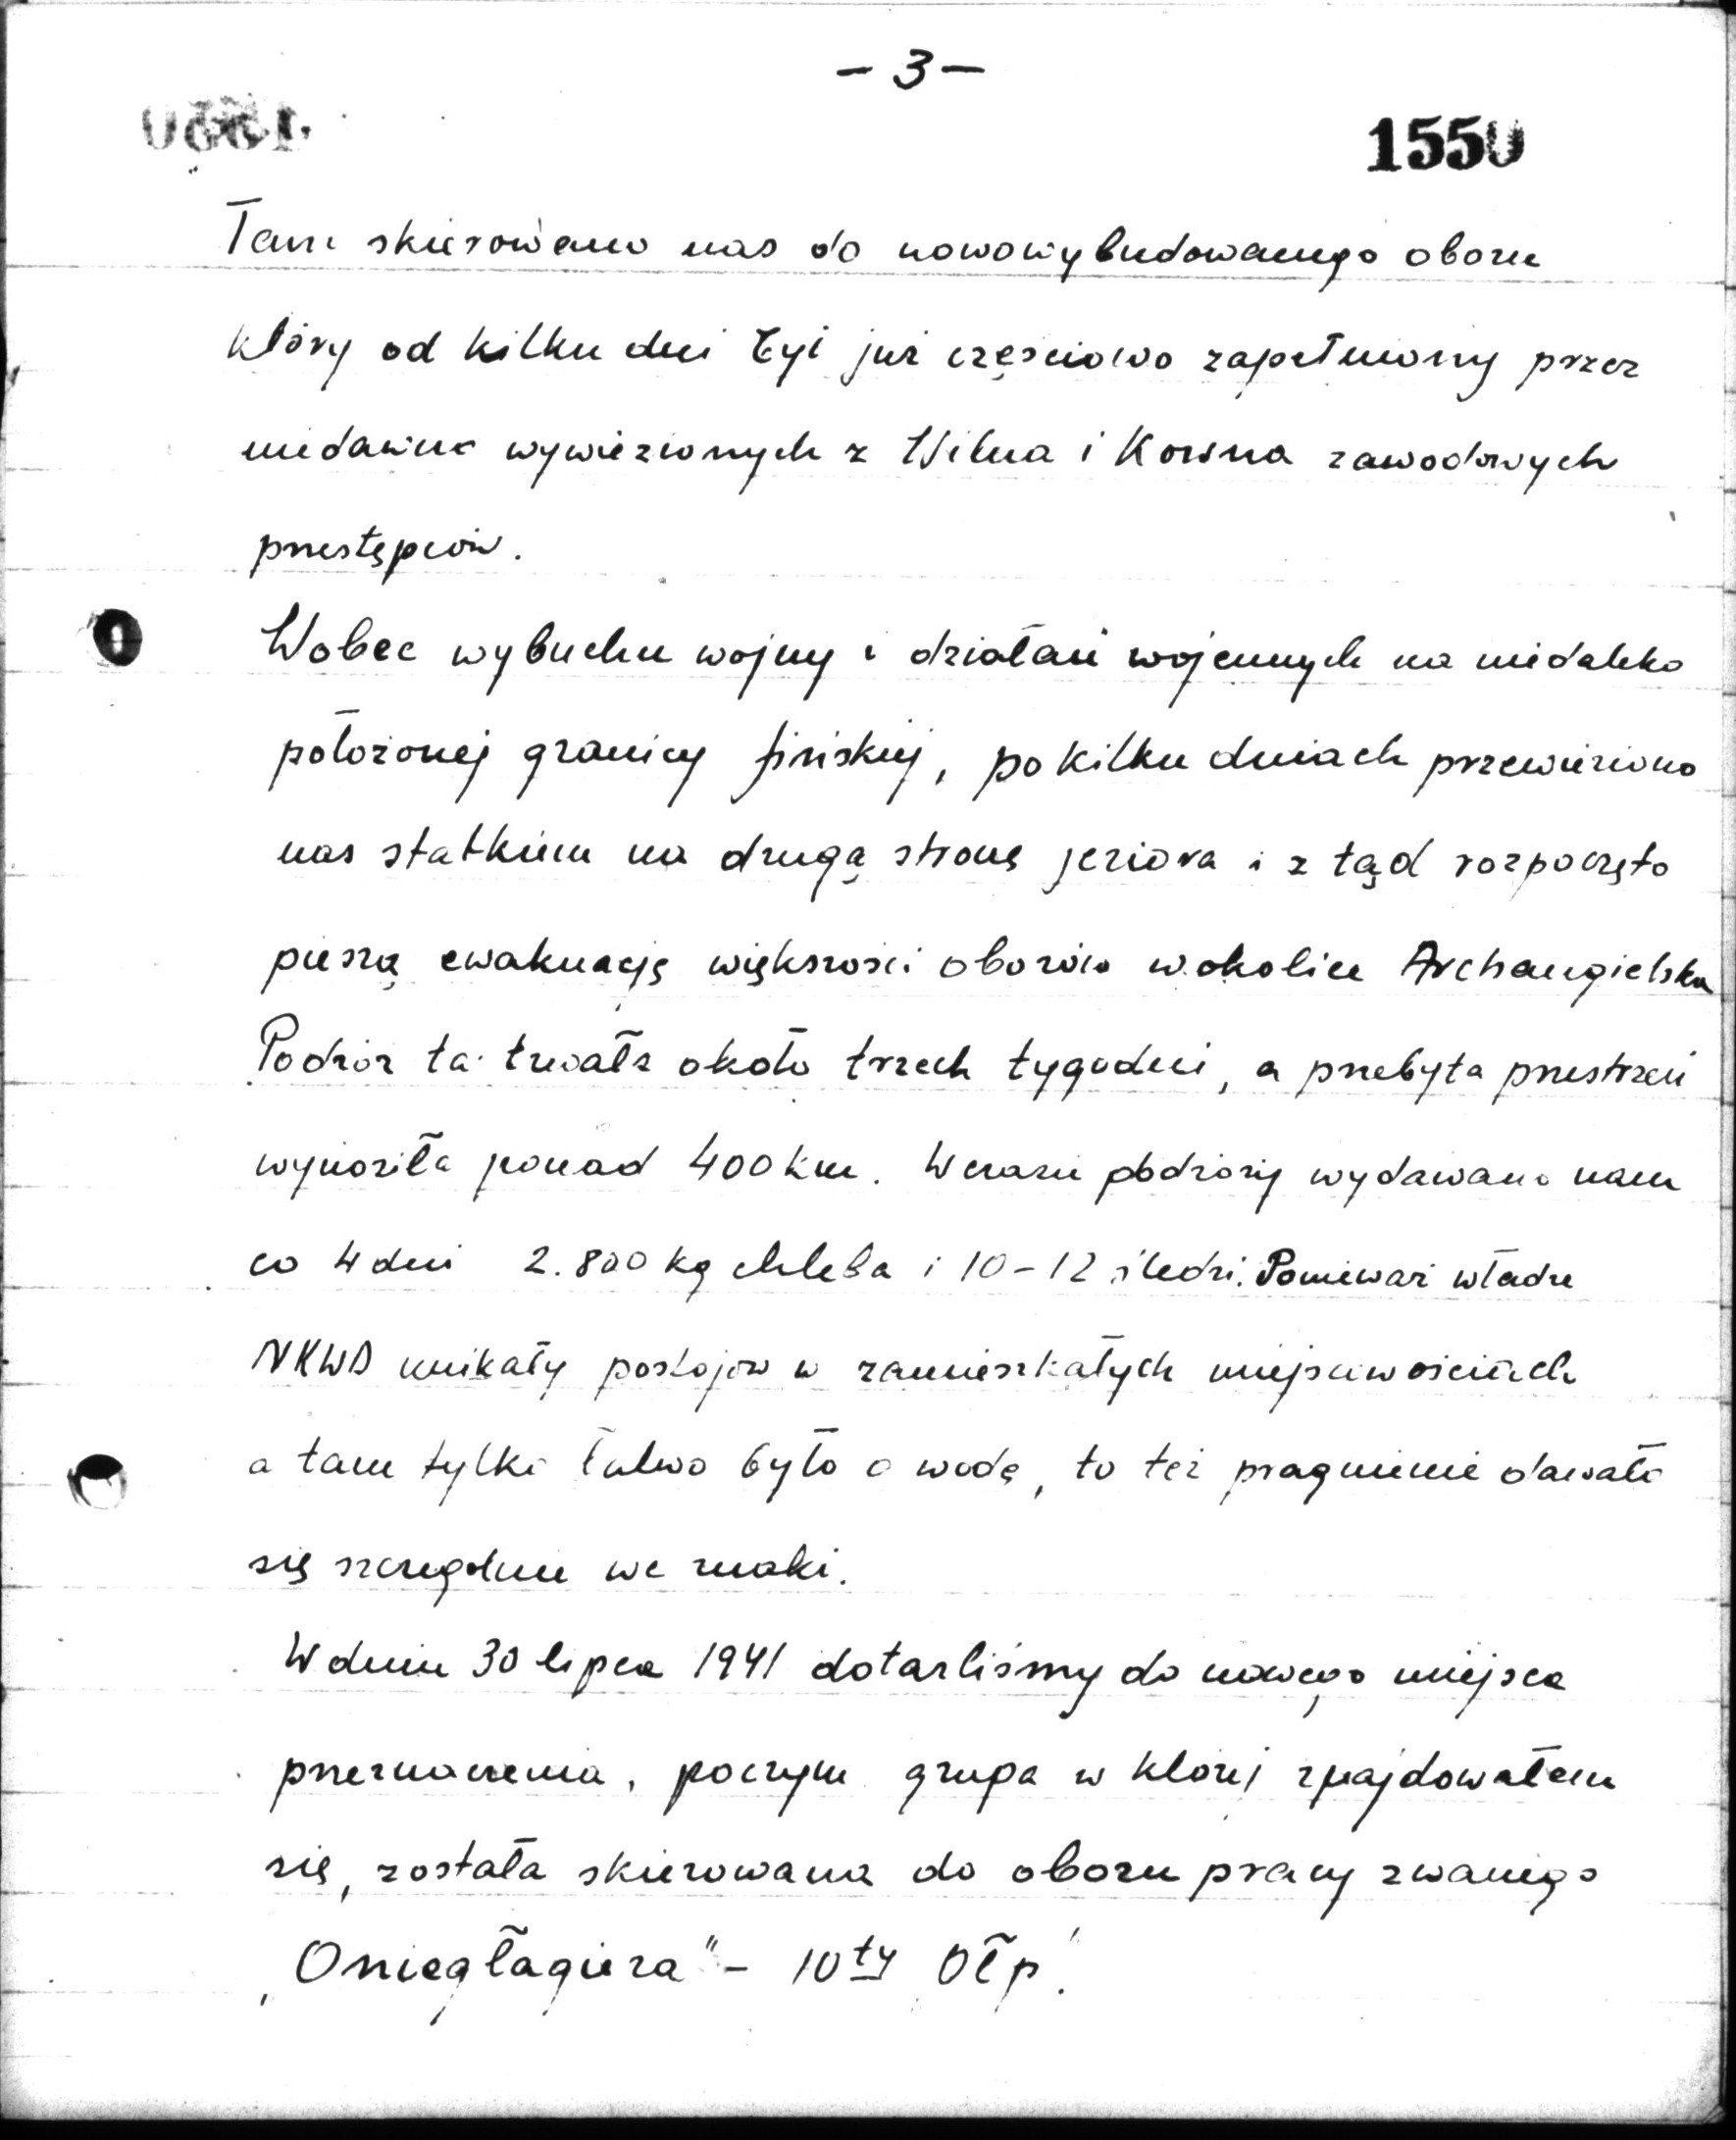 - 3 -
1550
Tam skierowano nas do nowowybudowanego obozu
który od kilku dni był już częściowo zapełniony przez
niedawno wywiezionych z Wilna i Kowna zawodowych
przestępców.
Wobec wybuchu wojny i działań wojennych na niedaleko
położonej granicy fińskiej, po kilku dniach przewieziono
nas statkiem na drugą stronę jeziora i z tąd rozpoczęto
pieszą ewakuację większości obozów w okolice Archangielska
Podróż ta trwała około trzech tygodni, a przebyta przestrzeń
wynosiła ponad 400 km. W czasie podróży wydawano nam
co 4 dni 2.800 kg chleba i 10-12 śledzi. Ponieważ władze
NKWD unikały postojów w zamieszkałych miejscowościach
a tam tylko łatwo było o wodę, to też pragnienie dawało
się szczególnie we znaki.
W dniu 30 lipca 1941 dotarliśmy do nowego miejsca
przeznaczenia, poczym grupa w której znajdowałem
się, została skierowana do obozu pracy zwanego
„Oniegłagiera" - 10ty Ołp.